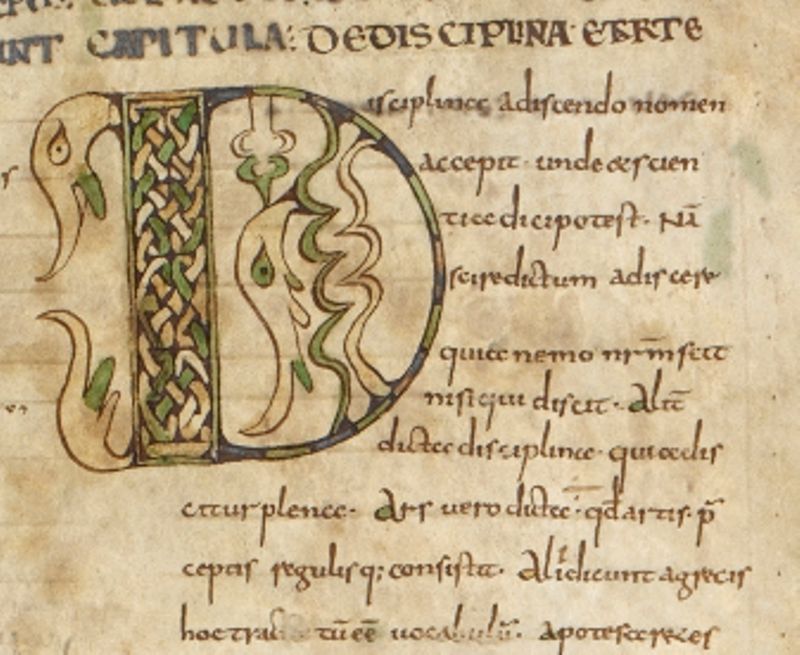 UNT CAPITULA: DE DISCIPLINA ET ARTE
Disciplina a discendo nomen
accepit · unde & scien
tia dici potest · Nā
scire dictum a discere
quia nemo nr̄m scit
nisi qui discit · Alit̄
dicta disciplina · quia dis
citur plena · Ars vero dicta · qd̄ artis p̄
ceptis regulisq; consistat · Alii dicunt a grecis
hoc tractū eē vocabulū · apo tes aretes